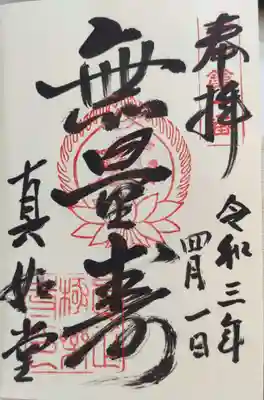 奉拝
令和三年
四月一日
無量寿
真如堂